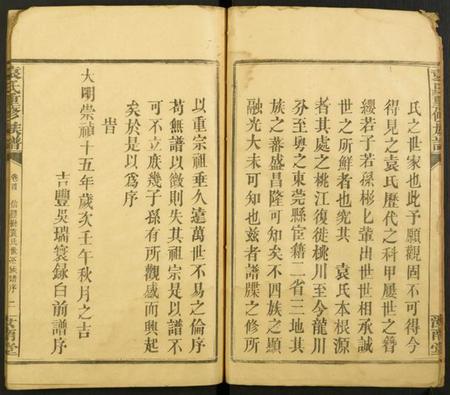 氏之世家也此予願觀固不可得今
得見之袁氏歷代之科甲屢世之簪
纓若子若孫彬匕輩出世世相承誠
世之所鮮者也究其 袁氏本根源
者其處之桃江復徙桃川至今龍川
分至粵之東莞縣宦籍二省三地其
族之蕃盛昌隆可知矣不四族之顯
融光大未可知也兹者譜牒之修所
以重宗祖垂久遠萬世不易之倫序
苟無譜以徵則失其祖宗是以譜不
可不立庶幾子孫有所觀感而興起
矣於是以為序
旹
大明崇禎十五年歲次壬午秋月之吉
吉豐吳瑞寰錄白前譜序
袁氏重修族譜
卷首
汝南堂